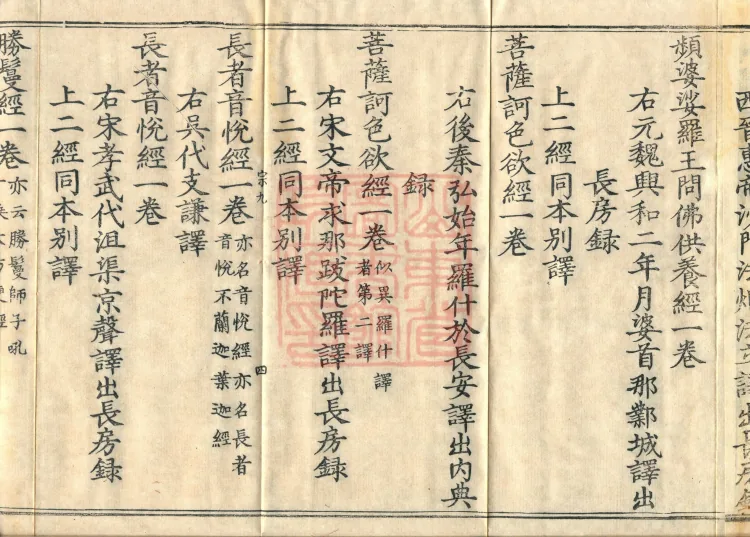 西晉惠帝沙門法炬法立譯出長房錄
頻婆娑羅王問佛供養經一卷
右元魏興和二年月婆首那鄴城譯出
長房録
上二經同本別譯
菩薩訶色欲經一卷
右後秦弘始年羅什於長安譯出内典
録
菩薩訶色欲經一卷 似異羅什譯
者第二譯
右宋文帝求那跋陀羅譯出長房録
上二經同本別譯
宗九 四
長者音悅經一卷 亦名音悅經亦名長者
音悅不蘭迦葉迦經
右吳代支謙譯
長者音悅經一卷
右宋孝武代沮渠京聲譯出長房録
上二經同本別譯
勝鬘經一卷 亦云勝鬘師子吼